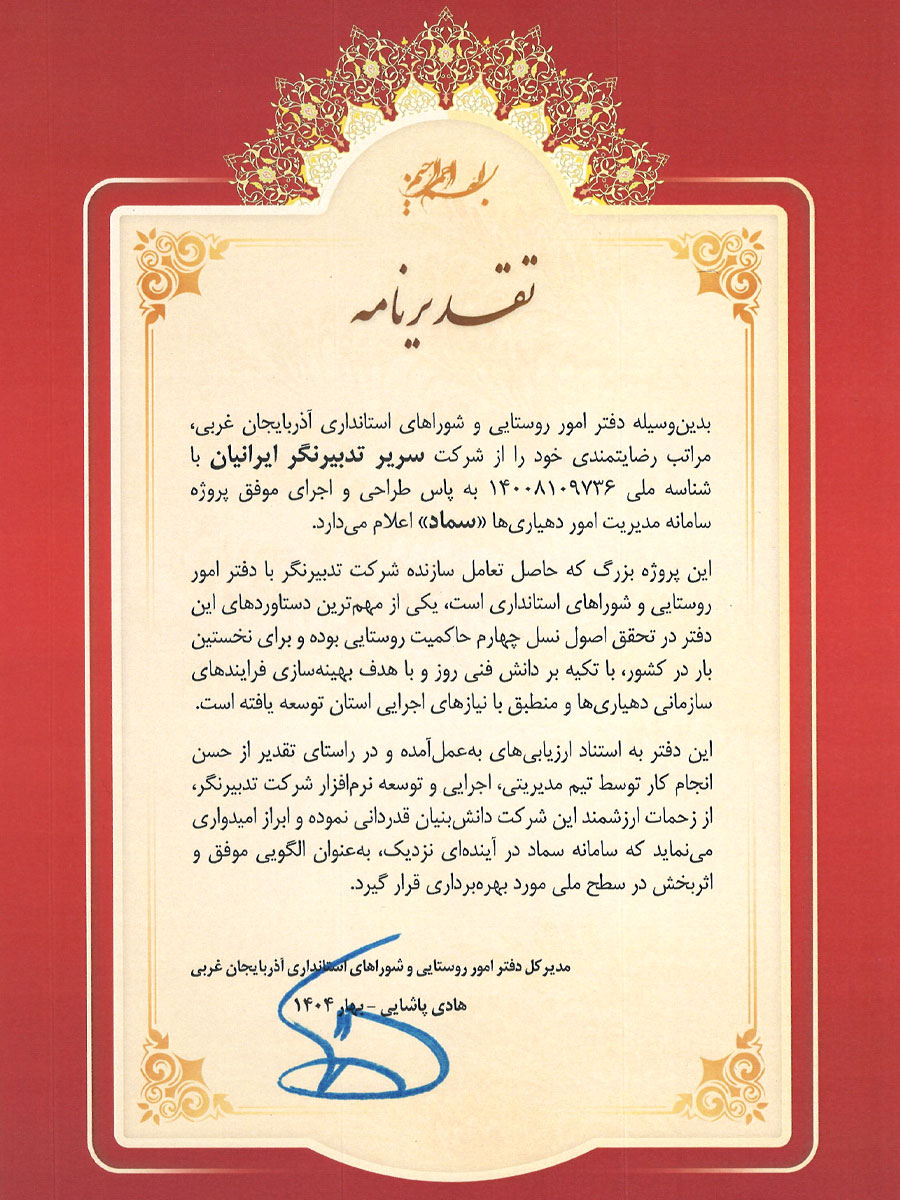 بسم الله الرحمن الرحیم
تقدیرنامه
بدین‌وسیله دفتر امور روستایی و شوراهای استانداری آذربایجان غربی،
مراتب رضایتمندی خود را از شرکت سریر تدبیرنگر ایرانیان با
شناسه ملی ۱۴۰۰۸۱۰۹۷۳۶ به پاس طراحی و اجرای موفق پروژه
سامانه مدیریت امور دهیاری‌ها «سماد» اعلام می‌دارد.
این پروژه بزرگ که حاصل تعامل سازنده شرکت تدبیرنگر با دفتر امور
روستایی و شوراهای استانداری است، یکی از مهم‌ترین دستاوردهای این
دفتر در تحقق اصول نسل چهارم حاکمیت روستایی بوده و برای نخستین
بار در کشور، با تکیه بر دانش فنی روز و با هدف بهینه‌سازی فرایندهای
سازمانی دهیاری‌ها و منطبق با نیازهای اجرایی استان توسعه یافته است.
این دفتر به استناد ارزیابی‌های به‌عمل‌آمده و در راستای تقدیر از حسن
انجام کار توسط تیم مدیریتی، اجرایی و توسعه نرم‌افزار شرکت تدبیرنگر،
از زحمات ارزشمند این شرکت دانش‌بنیان قدردانی نموده و ابراز امیدواری
می‌نماید که سامانه سماد در آینده‌ای نزدیک، به‌عنوان الگویی موفق و
اثربخش در سطح ملی مورد بهره‌برداری قرار گیرد.
مدیرکل دفتر امور روستایی و شوراهای استانداری آذربایجان غربی
هادی پاشایی - بهار ۱۴۰۴